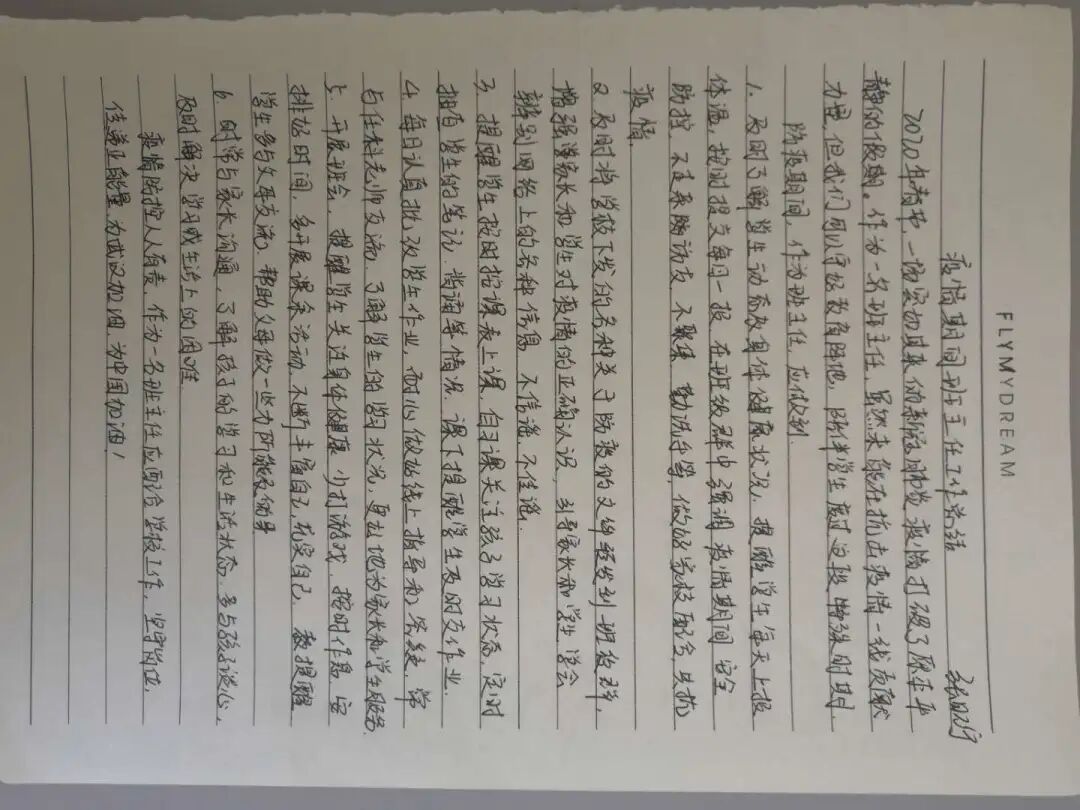 FLYMYDREAM
疫情期间班主任工作总结
2020年春节,一场突如其来的新冠肺炎疫情打破了原本平
静的假期。作为一名班主任,虽然未能在抗击疫情一线贡献
力量,但我们可以守好教育阵地,陪伴学生度过这段特殊时期.
防疫期间,作为班主任,应做到:
1. 及时了解学生动态及身体健康状况,提醒学生每天上报
体温,按时提交每日一报,在班级群中强调疫情期间安全
防控,不走亲访友,不聚集,勤洗手等,做好家校配合,共抗
疫情.
2. 及时将学校下发的各种关于防疫的文件转发到班级群,
增强课家长和学生对疫情的正确认识,引导家长和学生学会
辨别网络上的各种信息,不信谣,不传谣.
3. 提醒学生按时按课表上课,自习课关注孩子学习状态,定时
抽查学生的笔记,背诵等情况,课下提醒学生及时交作业.
4. 每日认真批改学生作业,耐心做好线上指导和答疑,常
与任科老师交流,了解学生的学习状况,更好地为家长和学生服务.
5. 开展班会,提醒学生关注身体健康,少打游戏,按时作息,安
排好时间,多开展课余活动,不断丰富自己,充实自己,教提醒
学生多与父母交流,帮助父母做一些力所能及的事
6. 时常与家长沟通,了解孩子的学习和生活状态,多与孩子谈心,
及时解决学习或生活上的困难.
疫情防控人人有责,作为一名班主任应配合学校工作,坚守岗位,
传递正能量,为武汉加油,为中国加油!